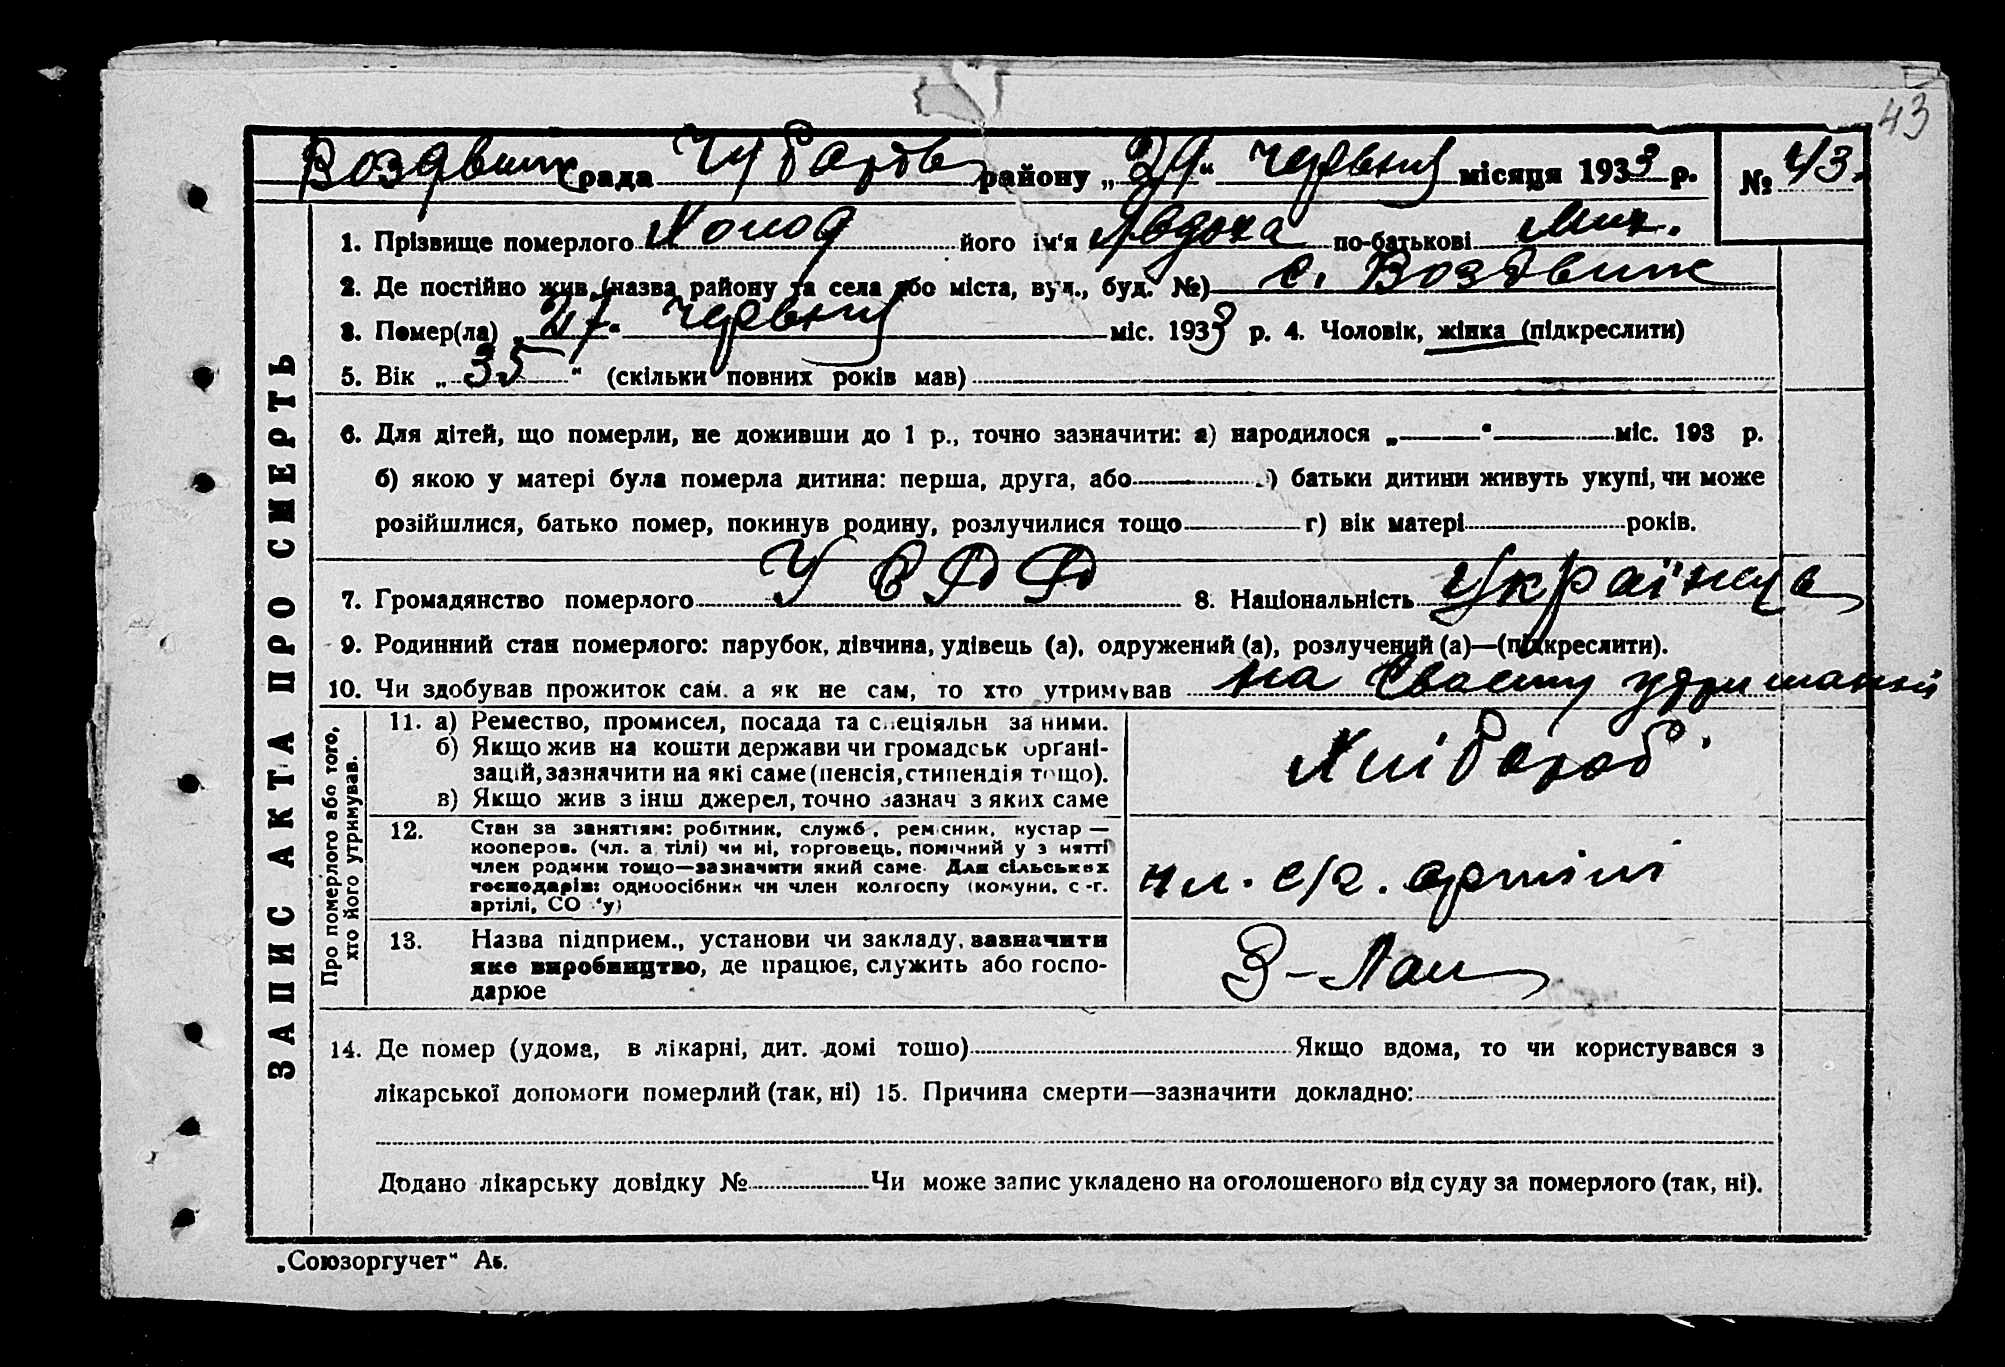 43
Воздвиж рада Чубарів району „29“ червня місяця 1933 р. № 43.
1. Прізвище померлого Холод його ім'я Явдоха по-батькові Мик.
2. Де постійно жив (назва району та села або міста, вул., буд. №) с. Воздвиж
3. Помер(ла) „27“ червня міс. 1933 р. 4. Чоловік, жінка (підкреслити)
5. Вік „35“ (скільки повних років мав)
6. Для дітей, що померли, не доживши до 1 р., точно зазначити: а) народилося „—“ міс. 193 р.
б) якою у матері була померла дитина: перша, друга, або ) батьки дитини живуть укупі, чи може
розійшлися, батько помер, покинув родину, розлучилися тощо г) вік матері років.
7. Громадянство померлого УСРР 8. Національність Українка
9. Родинний стан померлого: парубок, дівчина, удівець (а), одружений (а), розлучений (а)—(підкреслити).
10. Чи здобував прожиток сам, а як не сам, то хто утримував на своєму утриманні
ЗАПИС АКТА ПРО СМЕРТЬ
Про померлого або того,
хто його утримував.
11. а) Ремество, промисел, посада та спеціяльн за ними.
б) Якщо жив на кошти держави чи громадськ органі-
зацій, зазначити на які саме (пенсія, стипендія тощо).
в) Якщо жив з інш джерел, точно зазнач з яких саме
Хлібороб
12. Стан за заняттям: робітник, служб., ремісник, кустар —
кооперов. (чл. артілі) чи ні, торговець, помічний у занятті
член родини тощо—зазначити який саме. Для сільських
господарів: одноосібник чи член колгоспу (комуни, с.-г.
артілі, СО 'у)
чл. с/г. артілі
13. Назва підприєм., установи чи закладу, зазначити
яке виробництво, де працює, служить або госпо-
дарює
З-Лан
14. Де помер (удома, в лікарні, дит. домі тощо) Якщо вдома, то чи користувався з
лікарської допомоги померлий (так, ні) 15. Причина смерти—зазначити докладно:
Додано лікарську довідку № Чи може запис укладено на оголошеного від суду за померлого (так, ні).
„Союзоргучет“ Аб.